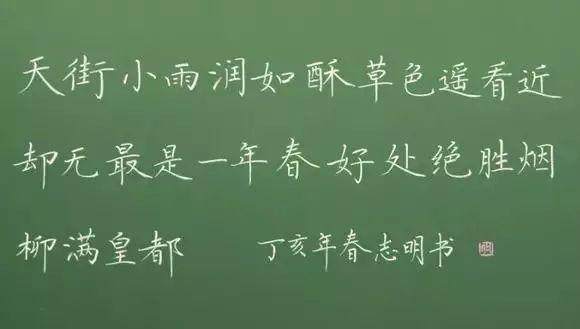 天街小雨润如酥草色遥看近
却无最是一年春好处绝胜烟
柳满皇都 丁亥年春志明书